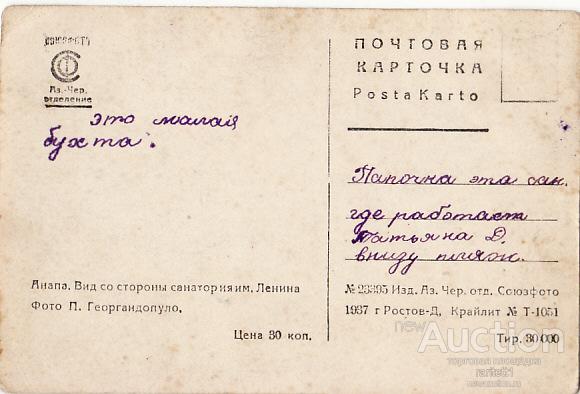 СОЮЗФОТО
Аз.-Чер.
отделение
это малая
бухта.
Анапа. Вид со стороны санатория им. Ленина
Фото П. Георгандопуло.
Цена 30 коп.
ПОЧТОВАЯ
КАРТОЧКА
Posta Karto
Папочка эта сан.
где работает
Татьяна Д.
внизу пляж.
№ 23395 Изд. Аз. Чер. отд. Союзфото
1937 г Ростов-Д, Крайлит № Т-1051
Тир. 30 000
newAuction
торговая площадка
raritet61
newauction.ru